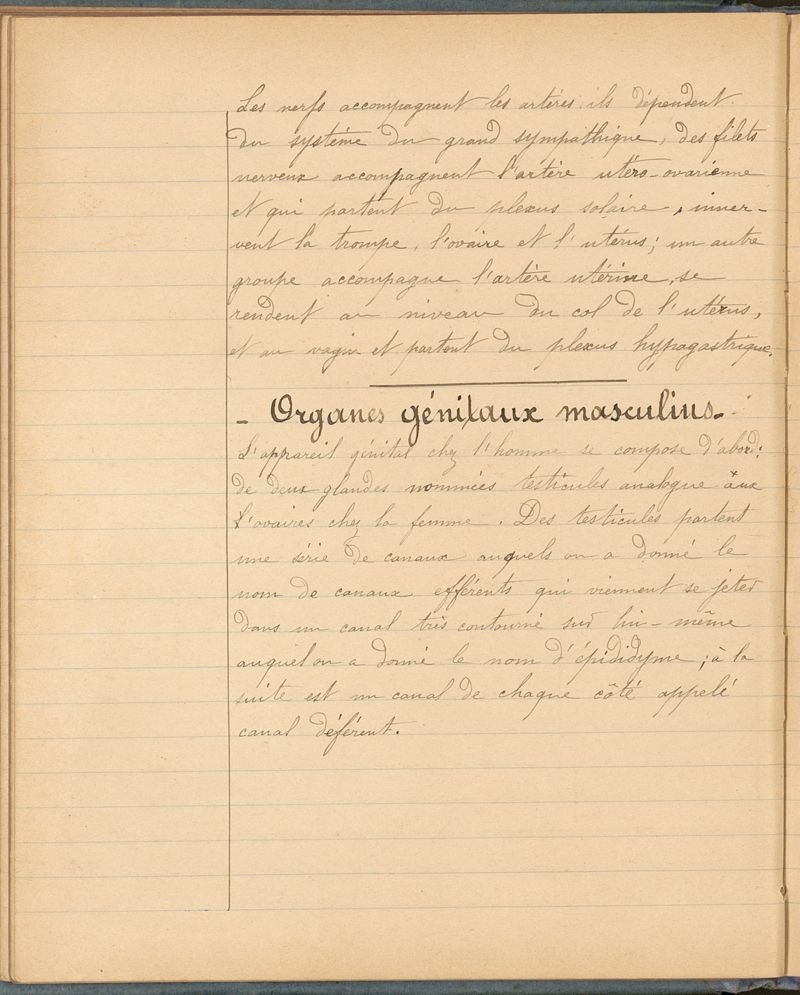 Les nerfs accompagnent les artères, ils dépendent
du système du grand sympathique, des filets
nerveux accompagnent l'artère utéro-ovarienne
et qui partent du plexus solaire, inner-
vent la trompe, l'ovaire et l'utérus; un autre
groupe accompagne l'artère utérine, se
rendent au niveau du col de l'utérus,
et au vagin et partent du plexus hypogastrique.
- Organes génitaux masculins -
L'appareil génital chez l'homme se compose d'abord:
de deux glandes nommées testicules analogue aux
l'ovaires chez la femme. Des testicules partent
une série de canaux auquels on a donné le
nom de canaux efférents qui viennent se jeter
dans un canal très contourné sur lui-même
auquel on a donné le nom d'épididyme; à la
suite est un canal de chaque côté appelé
canal déférent.